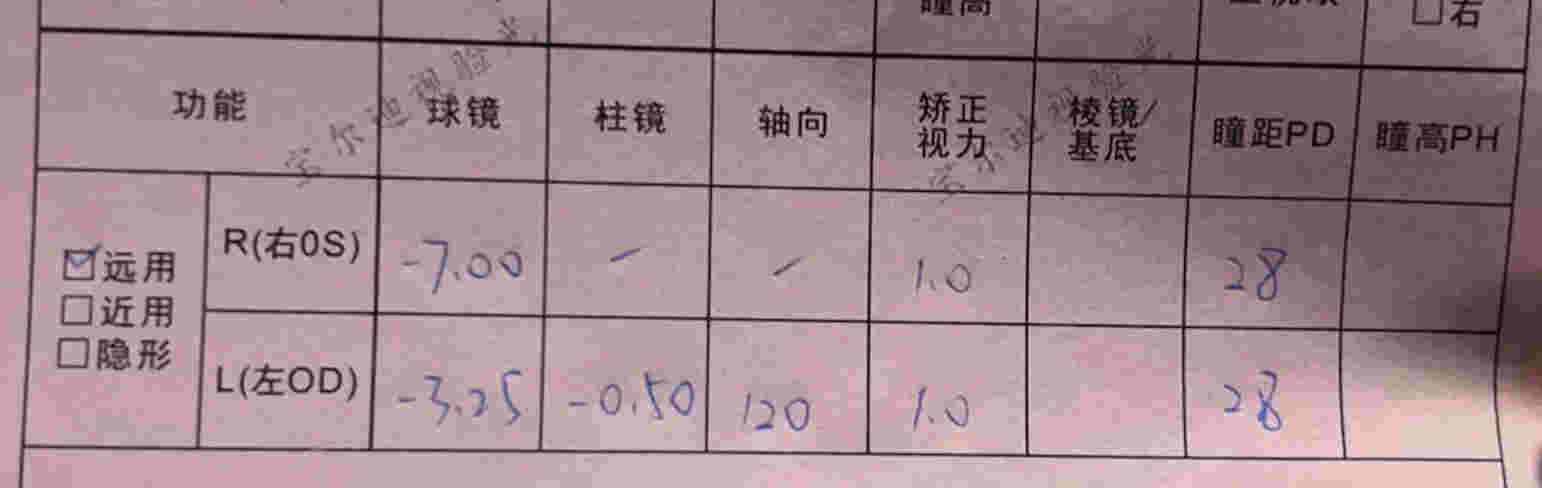 瞳高
□右
功能 球镜 柱镜 轴向 矫正视力 棱镜/基底 瞳距PD 瞳高PH
☑远用
□近用
□隐形
R(右0S) -7.00 - - 1.0 28
L(左OD) -3.25 -0.50 120 1.0 28